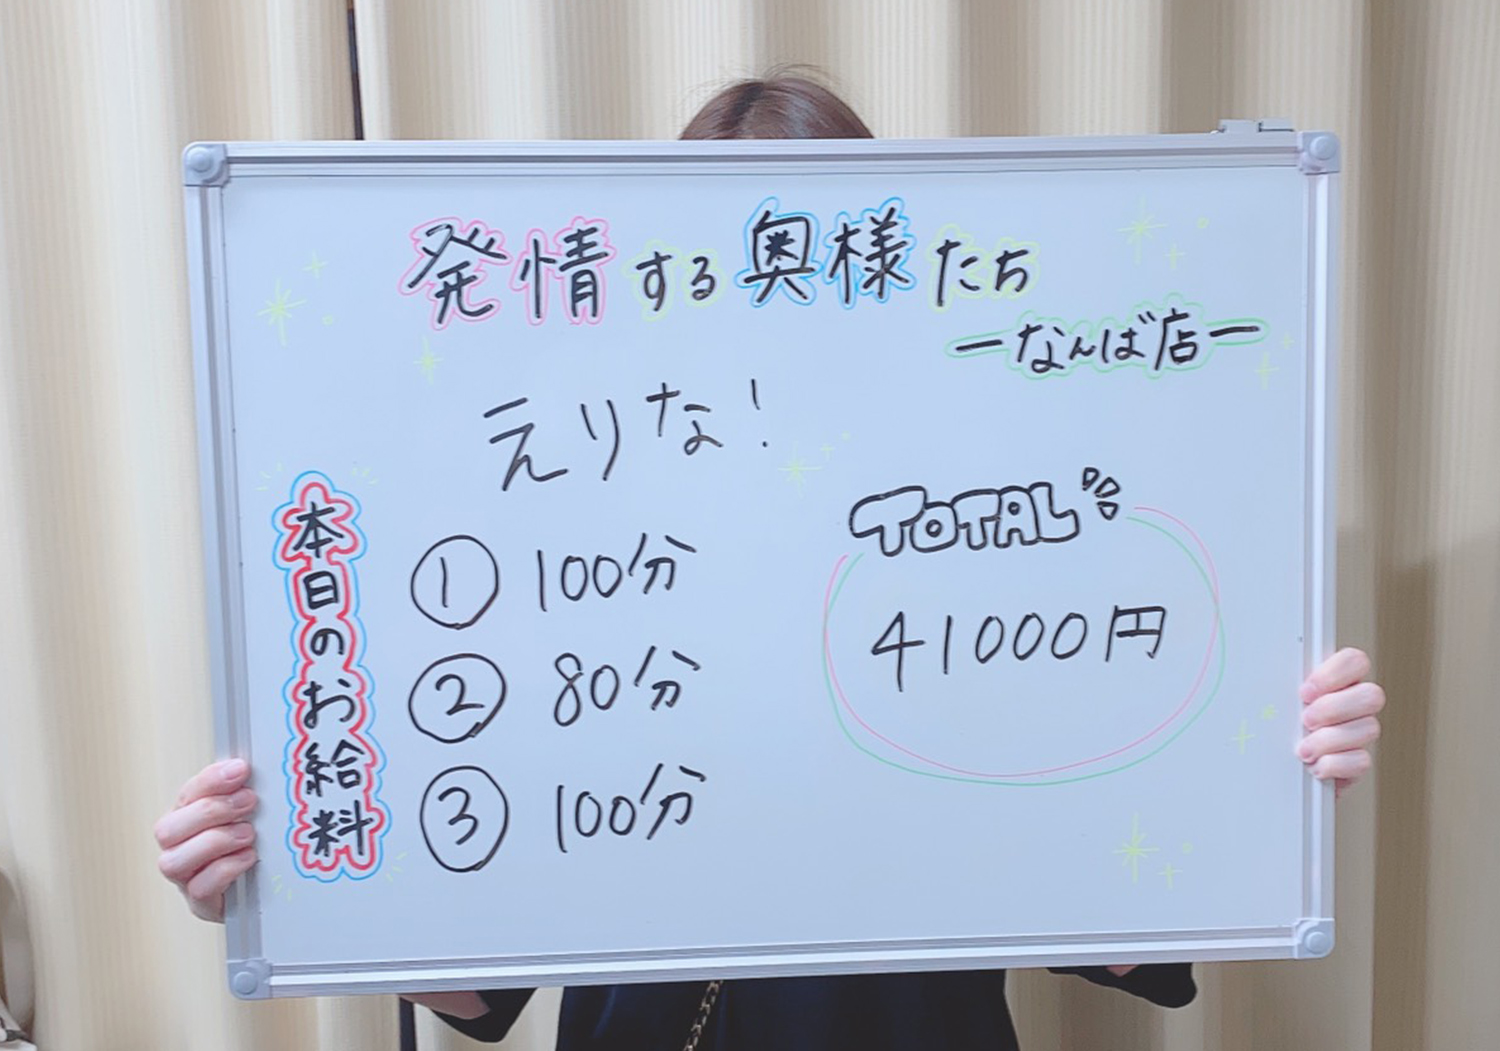 発情する奥様たち
ーなんば店ー
えりな!
本日のお給料
① 100分
② 80分
③ 100分
TOTAL
41000円